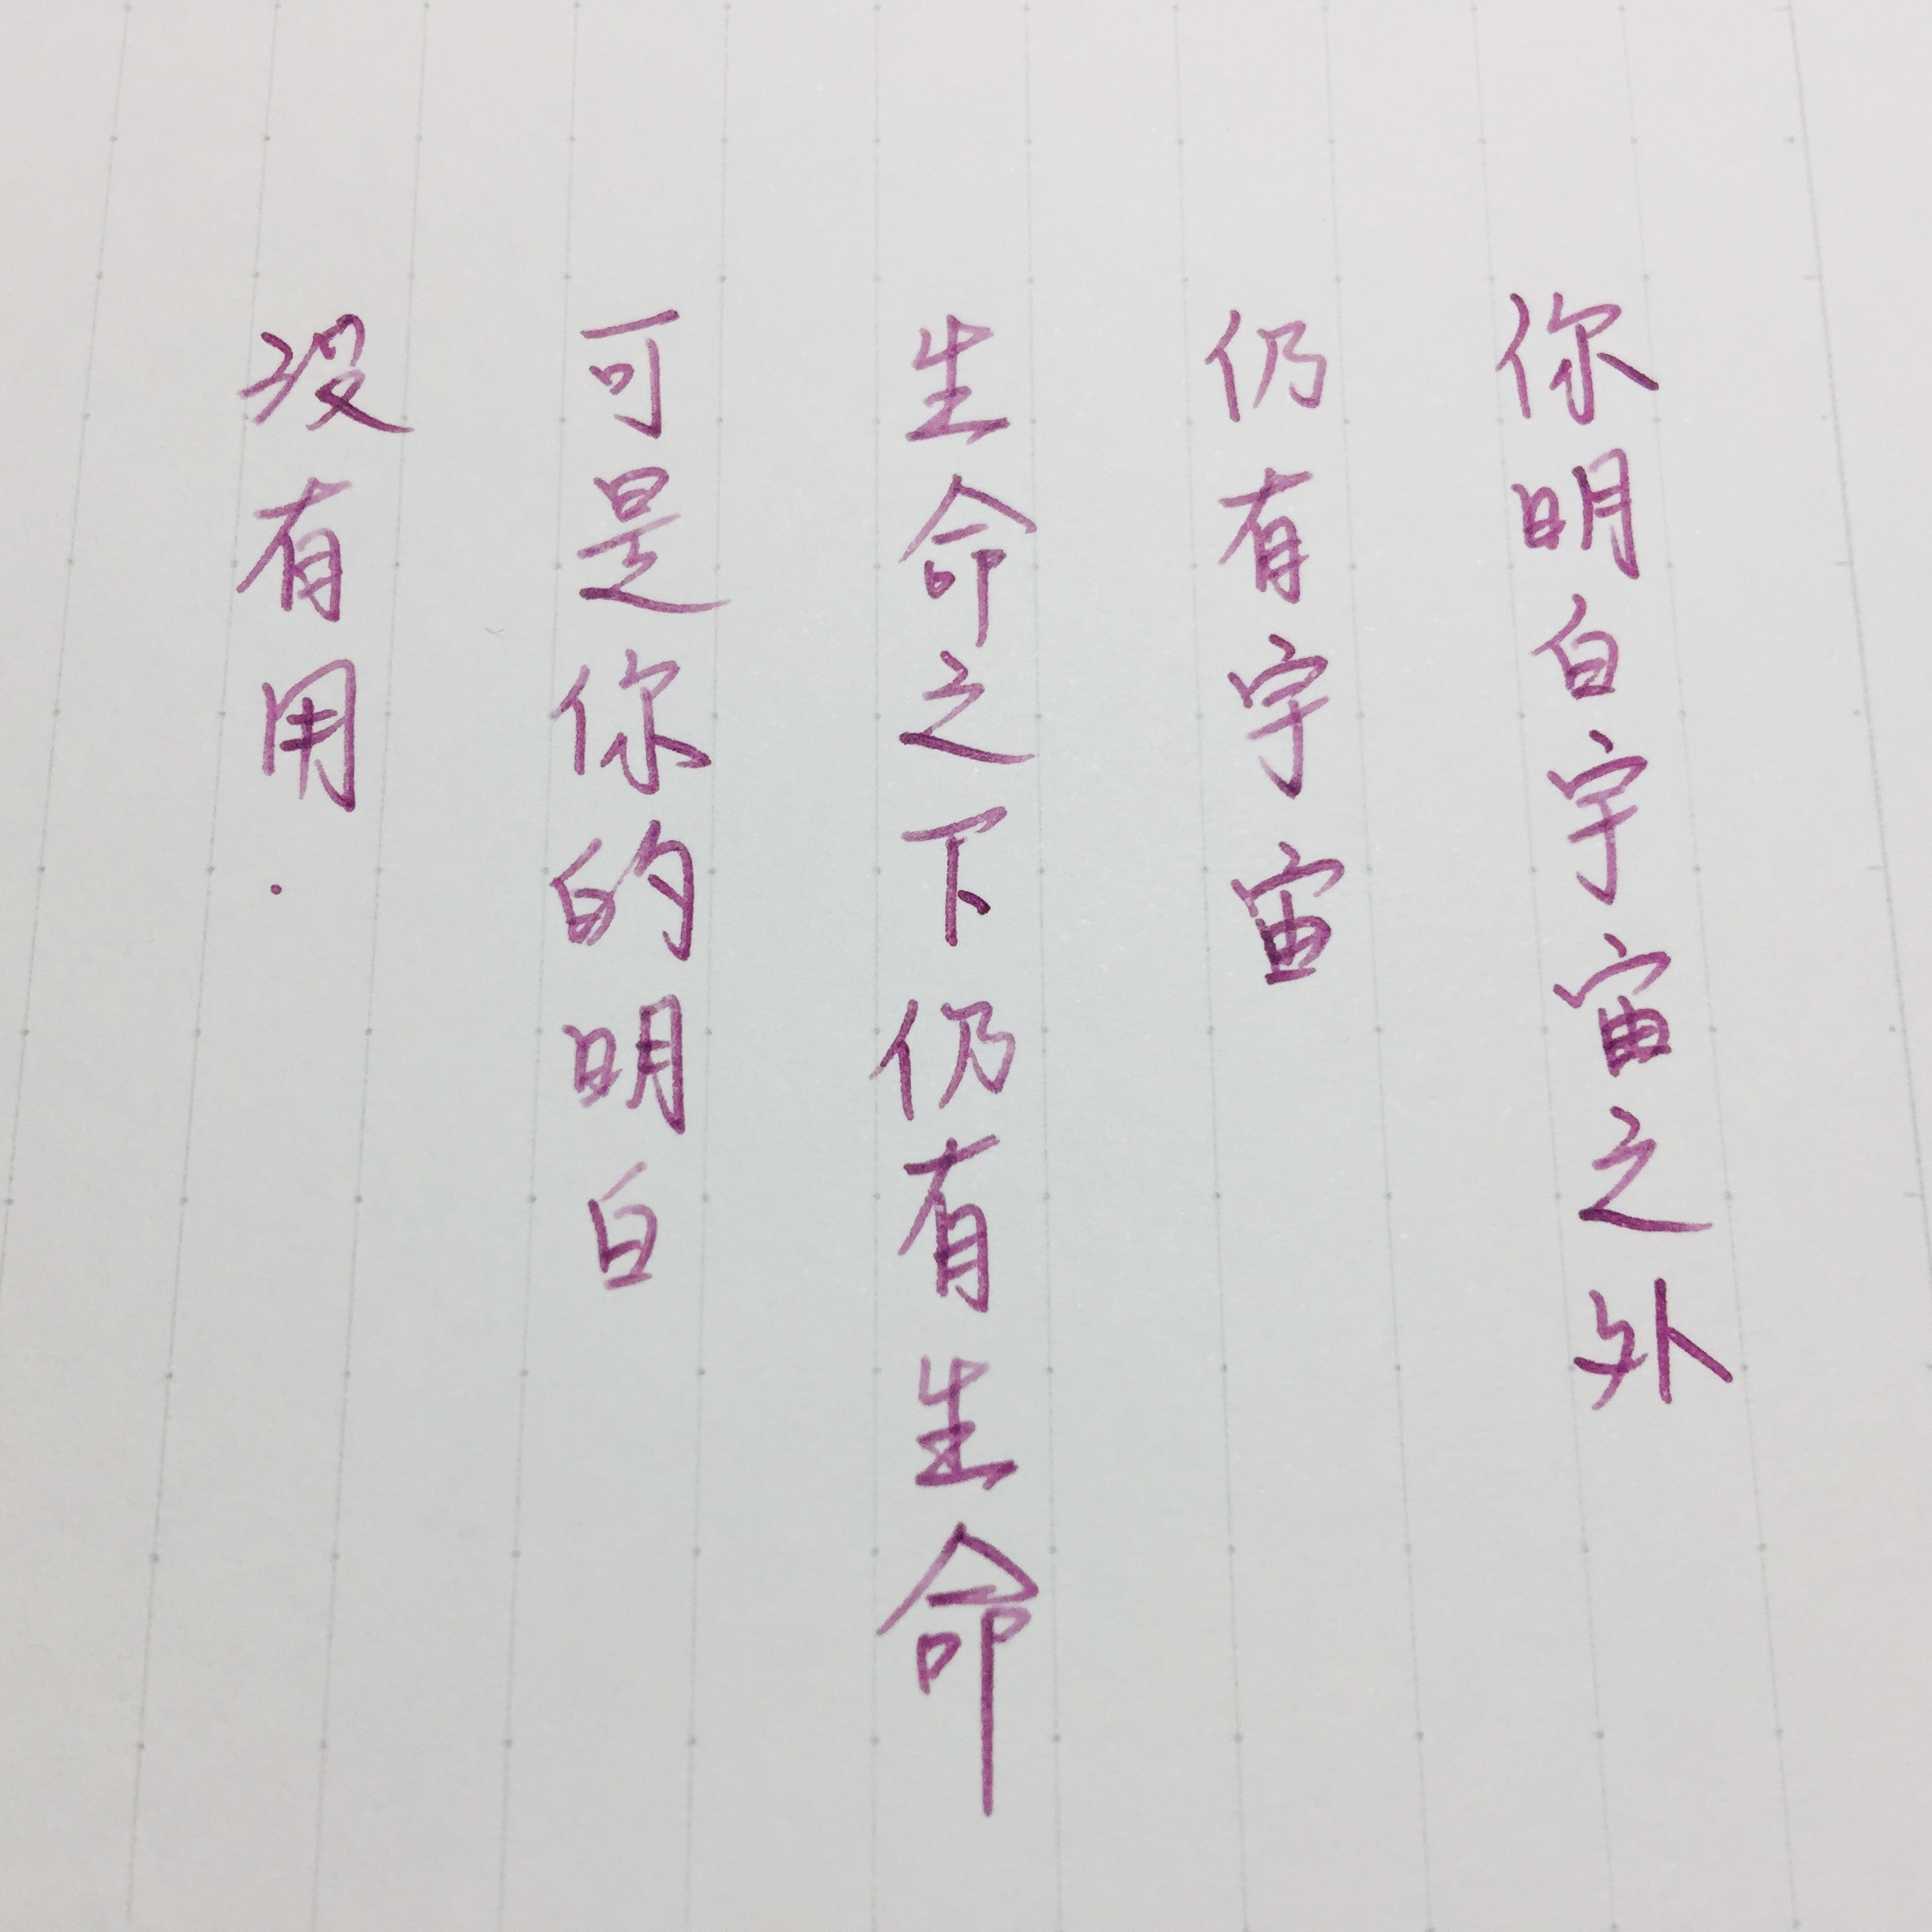 你明白宇宙之外
仍有宇宙
生命之下仍有生命
可是你的明白
没有用.